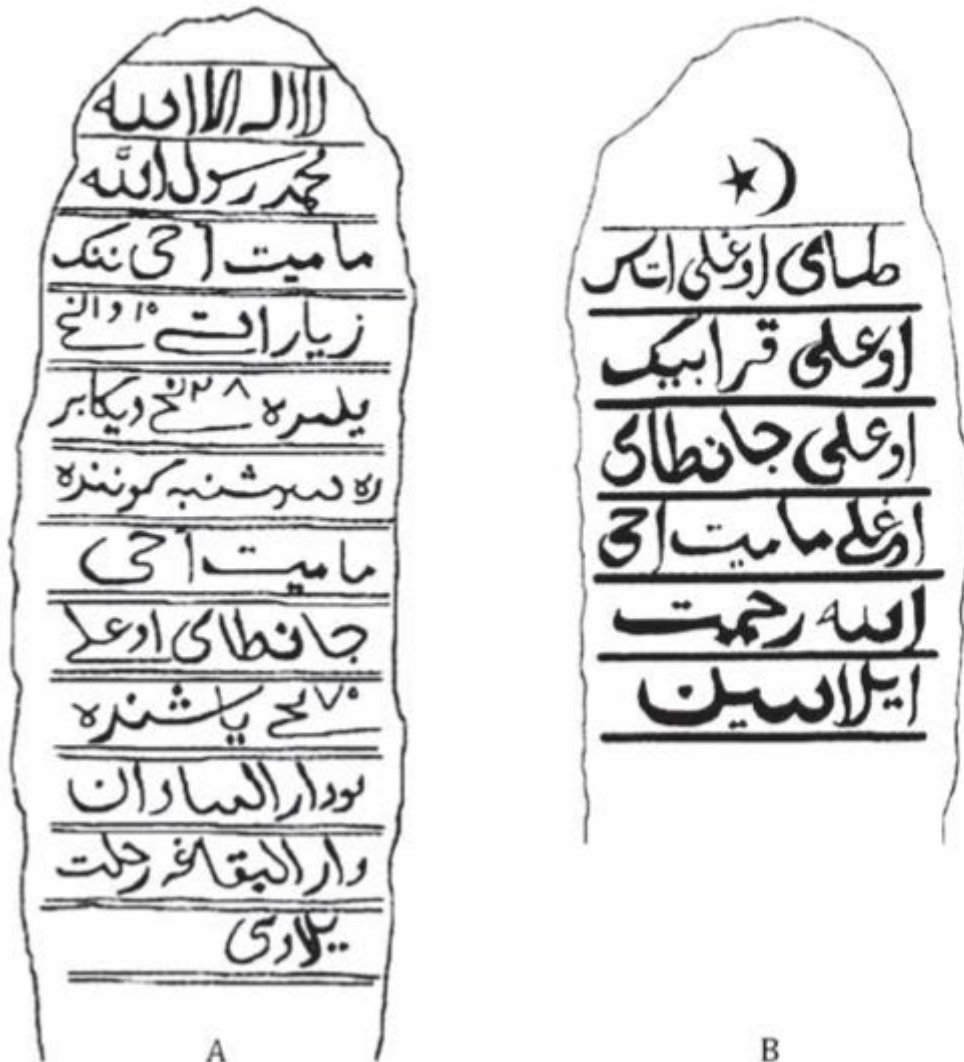 لا اله الا الله
محمد رسول الله
مامیت آحی ننک
زیاراتی ۱۵ ۱۹ نجی
یلمره ۲۸ نجی دیکابر
ره سه شنبه کوننده
مامیت آحی
جانطای اوعلے
۷۵ نجی یاشنده
بودار الفنادان
دار البقاغه رحلت
یلادی
A
طمای اوغلی اتاکه
اوعلی قرابیک
اوعلی جانطای
اوغلے مامیت احی
الله رحمت
ایلاسین
B